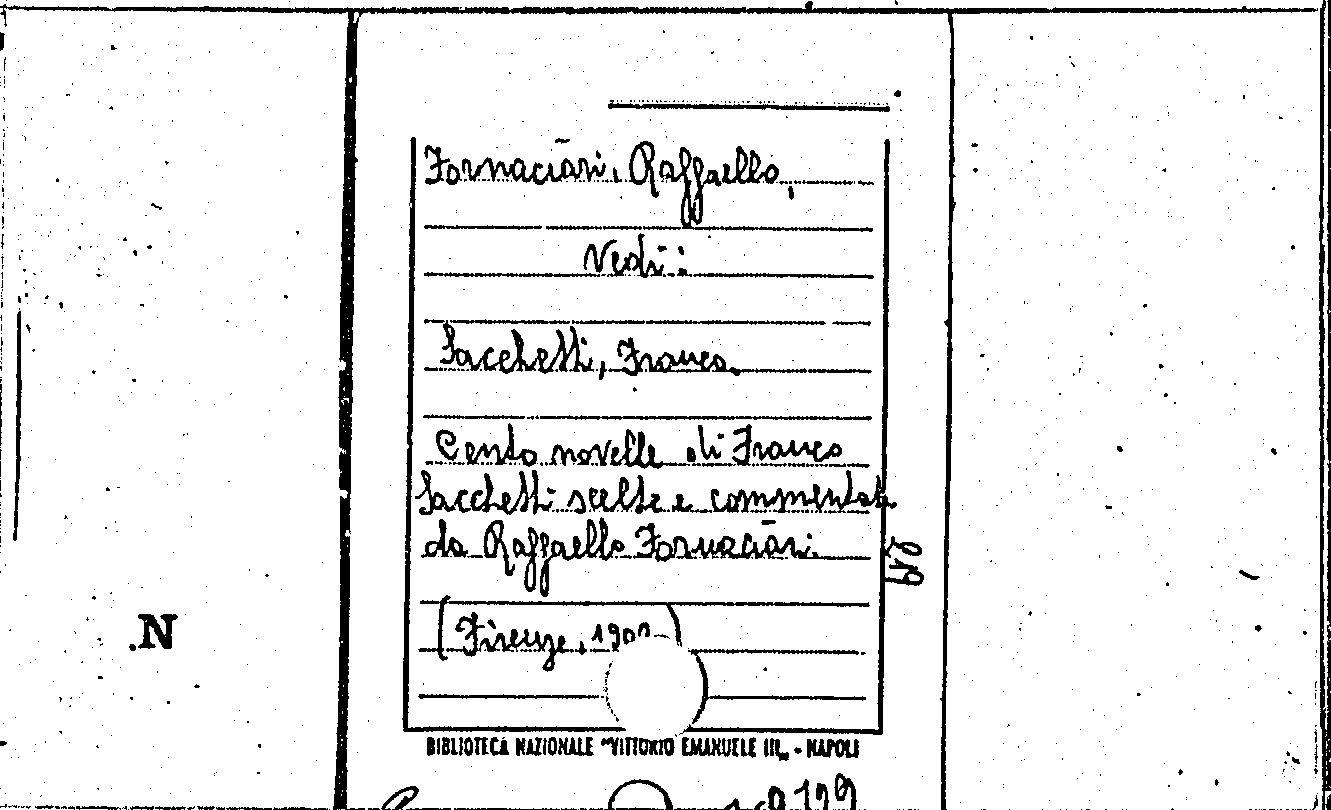 Fornaciāri, Raffaello,
Vedi:
Sacchetti, Franco.
Cento novelle di Franco
Sacchetti scelte e commentate
da Raffaello Fornaciāri.
219
(Firenze, 190 )
.N
BIBLIOTECA NAZIONALE "VITTORIO EMANUELE III„ - NAPOLI